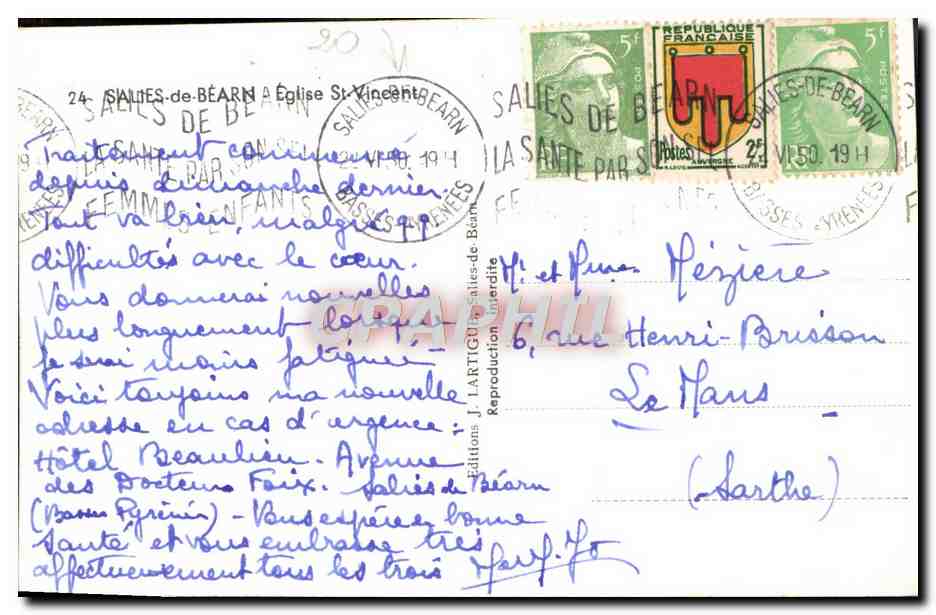 20
24 SALIES-de-BÉARN Église St-Vincent
SALIES DE BÉARN
LA SANTÉ PAR SON SEL
FEMMES ENFANTS
SALIES-DE-BÉARN
VI.50. 19 H
BASSES PYRENEES
5F
REPUBLIQUE
FRANÇAISE
Postes 2F
AUVERGNE
5F
POSTES
SALIES DE BÉARN
LA SANTE PAR SON
SALIES-DE-BÉARN
VI.50. 19 H
BASSES PYRENEES
Traitement commencé
depuis dimanche dernier.
Tout va bien, malgré qq
difficultés avec le cœur.
Vous donnerai nouvelles
plus longuement lorsque
je serai moins fatiguée -
Voici toujours ma nouvelle
adresse en cas d'urgence :
Hôtel Beaulieu. Avenue
des Docteurs Foix. Salies de Béarn
(Basses Pyrénées) - Vous espère en bonne
santé et vous embrasse très
affectueusement tous les trois
Editions J. LARTIGUE, Salies-de-Béarn
Reproduction interdite
CPAPHIL
Mr et Mme Mézière
6, rue Henri-Brisson
Le Mans
(Sarthe)